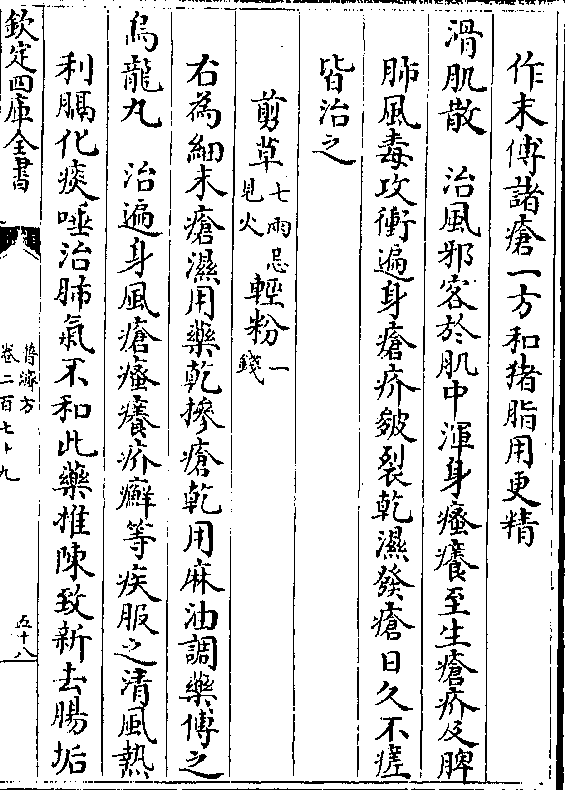 作末傅諸瘡一方和猪脂用更精
滑肌散　治風邪客於肌中渾身瘙癢至生瘡疥及脾
肺風毒攻衝遍身瘡疥皴裂乾濕發瘡日久不瘥
皆治之
剪草七兩忌見火　輕粉一錢
右為細末瘡濕用藥乾摻瘡乾用麻油調藥傅之
烏龍丸　治遍身風瘡瘙癢疥癬等疾服之清風熱
利膈化痰唾治肺氣不和此藥推陳致新去腸垢
欽定四庫全書
普濟方
卷二百七十九
五十八